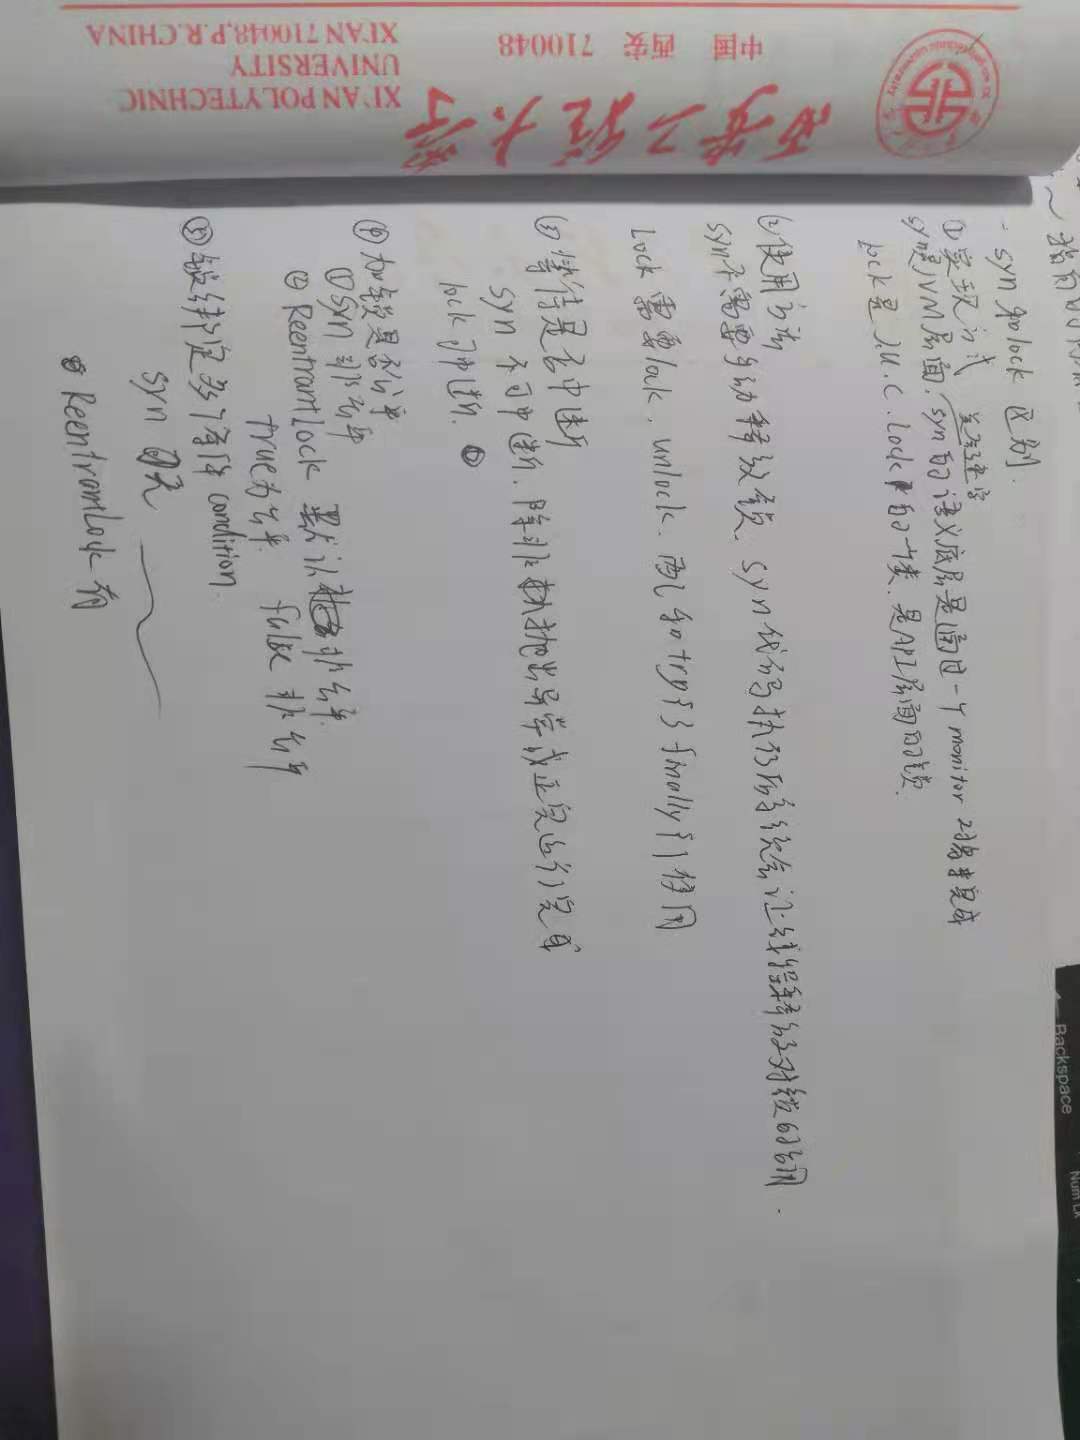 西安工程大学
中国 西安 710048
XI'AN POLYTECHNIC
UNIVERSITY
XI'AN 710048,P.R.CHINA
syn和lock区别.
①实现方式
关键字
syn是JVM层面, syn的语义底层是通过一个monitor对象来完成
lock是J.U.C.Lock中的一个类.是API层面的锁.
②使用方法
syn不需要手动释放锁. syn代码执行后系统会让线程释放对锁的占用.
Lock需要lock. unlock. 配合try{}finally{}使用
③等待是否中断
syn 不可中断. 除非抛出异常或正常运行完成
lock可中断.
④加锁是否公平
①syn非公平
②ReentrantLock 默认非公平.
true为公平. false 非公平
⑤锁绑定多个条件condition.
syn 没
ReentrantLock有
Backspace